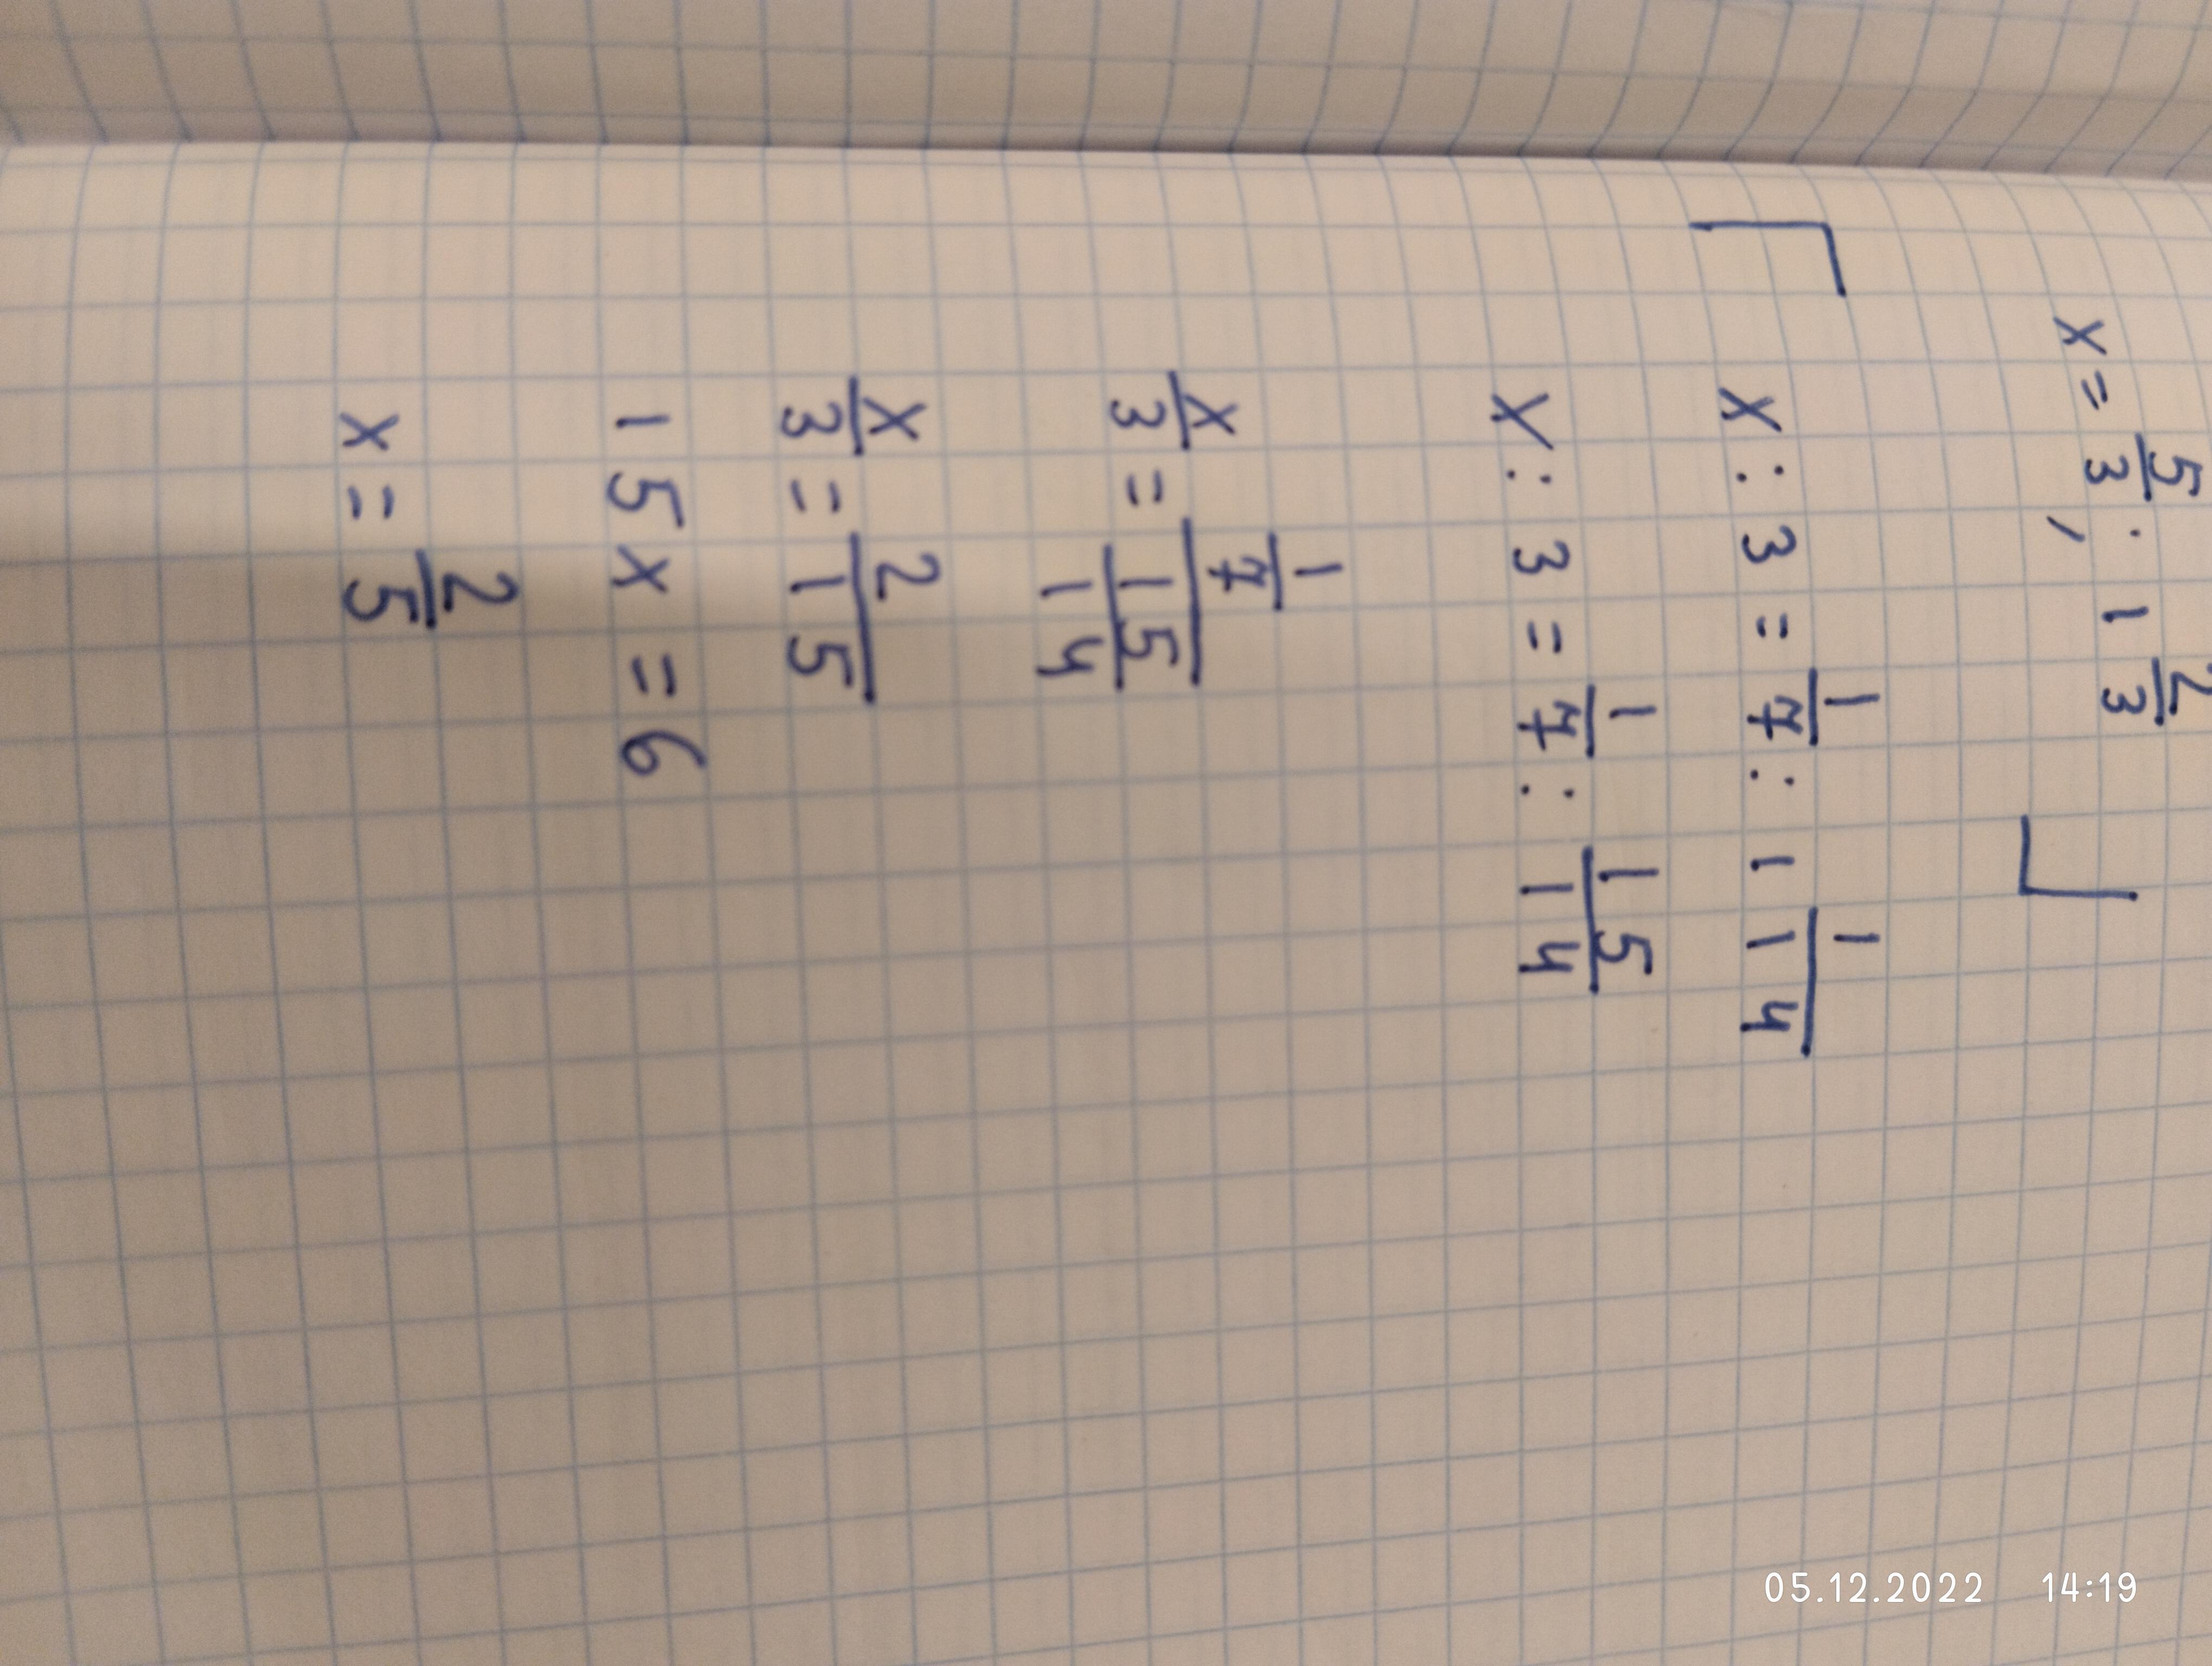 x = 5/3 ; 1 2/3
x : 3 = 1/7 : 1 1/14
x : 3 = 1/7 : 15/14
x/3 = 1/7 / 15/14
x/3 = 2/15
15x = 6
x = 2/5
05.12.2022 14:19